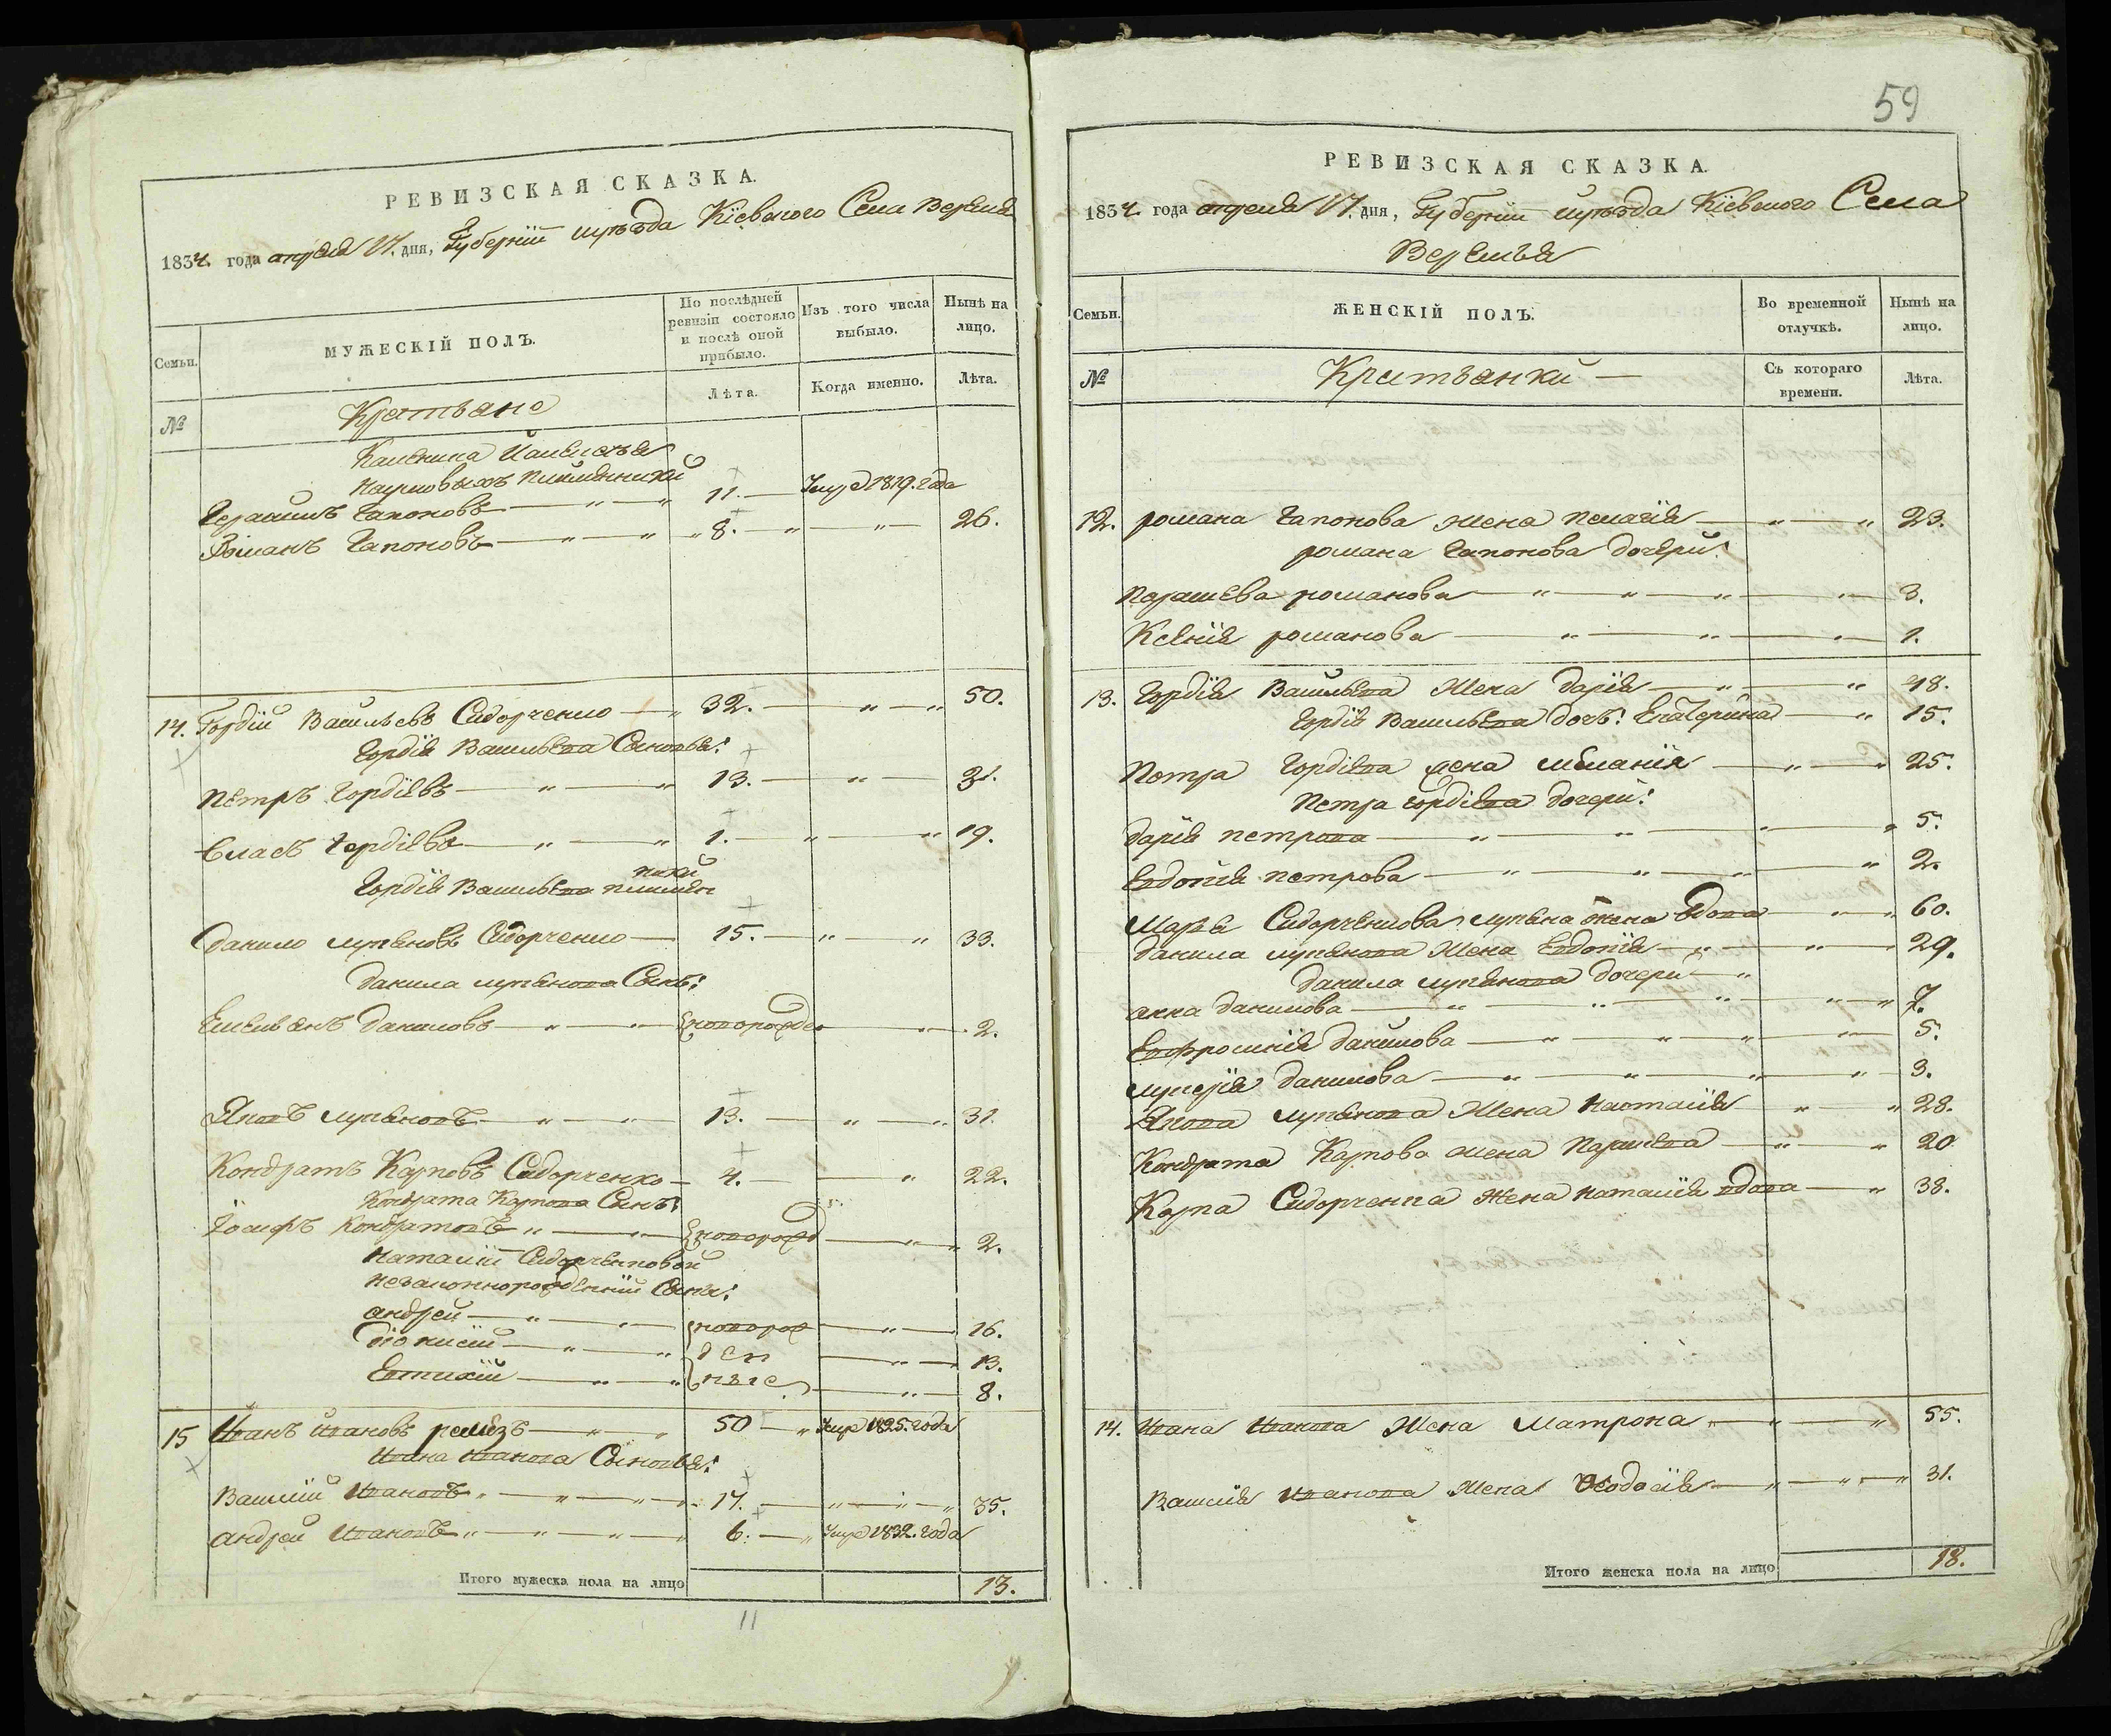 РЕВИЗСКАЯ СКАЗКА.
1834. года апреля 17. дня, Губернїи и уѣзда Кїевского Села Веремья
Семьи.
МУЖЕСКІЙ ПОЛЪ.
По послѣдней ревизіи состояло и послѣ оной прибыло.
Изъ того числа выбыло.
Нынѣ на лицо.
№
Крестьяне
Лѣта.
Когда именно.
Лѣта.
Наумовыхъ племянники
Герасимъ Гапоновъ 11. Умре 1819. года
Романъ Гапоновъ 8. 26.
14. Гордїй Васильевъ Сидорченко 32. 50.
Гордїя Васильева Сыновья:
Петръ Гордїевъ 13. 31.
Власъ Гордїевъ 1. 19.
Гордїя Васильева племянники
Данило Лукьяновъ Сидорченко 15. 33.
Данила Лукьянова Сынъ:
Емельянъ Даниловъ новорожде 2.
Яковъ Лукьяновъ 13. 31.
Кондратъ Карповъ Сидорченко 4. 22.
Кондрата Карпова Сынъ:
Іосифъ Кондратовъ новорожд 2.
Наталїи Сидорченковой
незаконнорожденнїи Сыны:
Андрей новорож 16.
Дїонисїй ден 13.
Евтихїй ные 8.
15 Иванъ Ивановъ Ремезъ 50 Умре 1825. года
Ивана Иванова Сыновья:
Василїй Ивановъ 17. 35.
Андрей Ивановъ 6. Умре 1832. года
Итого мужеска пола на лицо 13.
11
59
РЕВИЗСКАЯ СКАЗКА.
1834. года апреля 17. дня, Губернїи и уѣзда Кїевского Села
Веремья
Семьи.
ЖЕНСКІЙ ПОЛЪ.
Во временной отлучкѣ.
Нынѣ на лицо.
№
Крестьянки
Съ котораго времени.
Лѣта.
12. Романа Гапонова жена Пелагїя 23.
Романа Гапонова дочери:
Параскева Романова 3.
Ксенїя Романова 1.
13. Гордїя Васильева Жена Дарїя 48.
Гордїя Васильева дочь: Екатерина 15.
Петра Гордїева жена Меланїя 25.
Петра Гордїева дочери:
Дарїя Петрова 5.
Евдокїя Петрова 2.
Марья Сидорченкова Лукьяна жена вдова 60.
Данила Лукьянова Жена Евдокїя 29.
Данила Лукьянова дочери
Анна Данилова 7.
Евфросинїя Данилова 5.
Лукерїя Данилова 3.
Якова Лукьянова Жена Настасїя 28.
Кондрата Карпова жена Параскева 20
Карпа Сидорченка жена Наталїя вдова 38.
14. Ивана Иванова Жена Матрона 55.
Василїя Иванова Жена Феодосїя 31.
Итого женска пола на лицо 18.